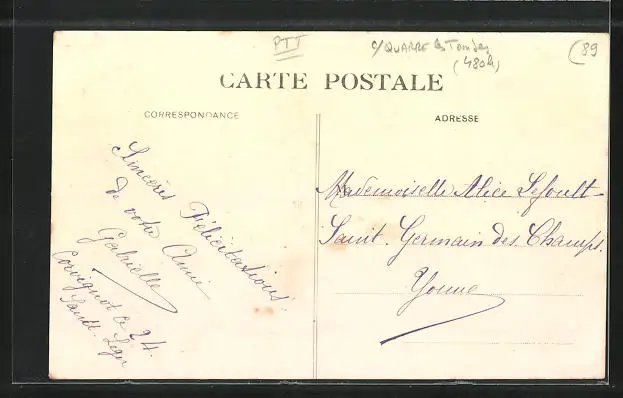 PTT
c/ QUARRE les Tombes
(480h)
(89
CARTE POSTALE
CORRESPONDANCE
ADRESSE
Sincères Félicitations
de votre Amie
Gabrielle
le 24.
Saint. Leger
Mademoiselle Alice
Saint. Germain des. Champs.
Yonne